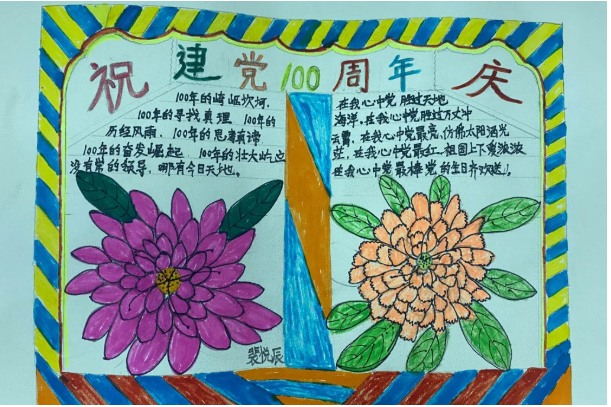 祝建党100周年庆
100年的崎岖坎坷，
100年的寻找真理 100年的
历经风雨，100年的思考
100年的奋发崛起，100年的壮大
没有党的领导，哪有今日天地。
在我心中党，胜过天地
海洋，在我心中党，胜过万丈冲
云霄，在我心中党最亮，仿佛太阳洒光
在我心中党最红，祖国上下爱浓浓
在我心中党最棒，党的生日齐欢送！
裴悦辰